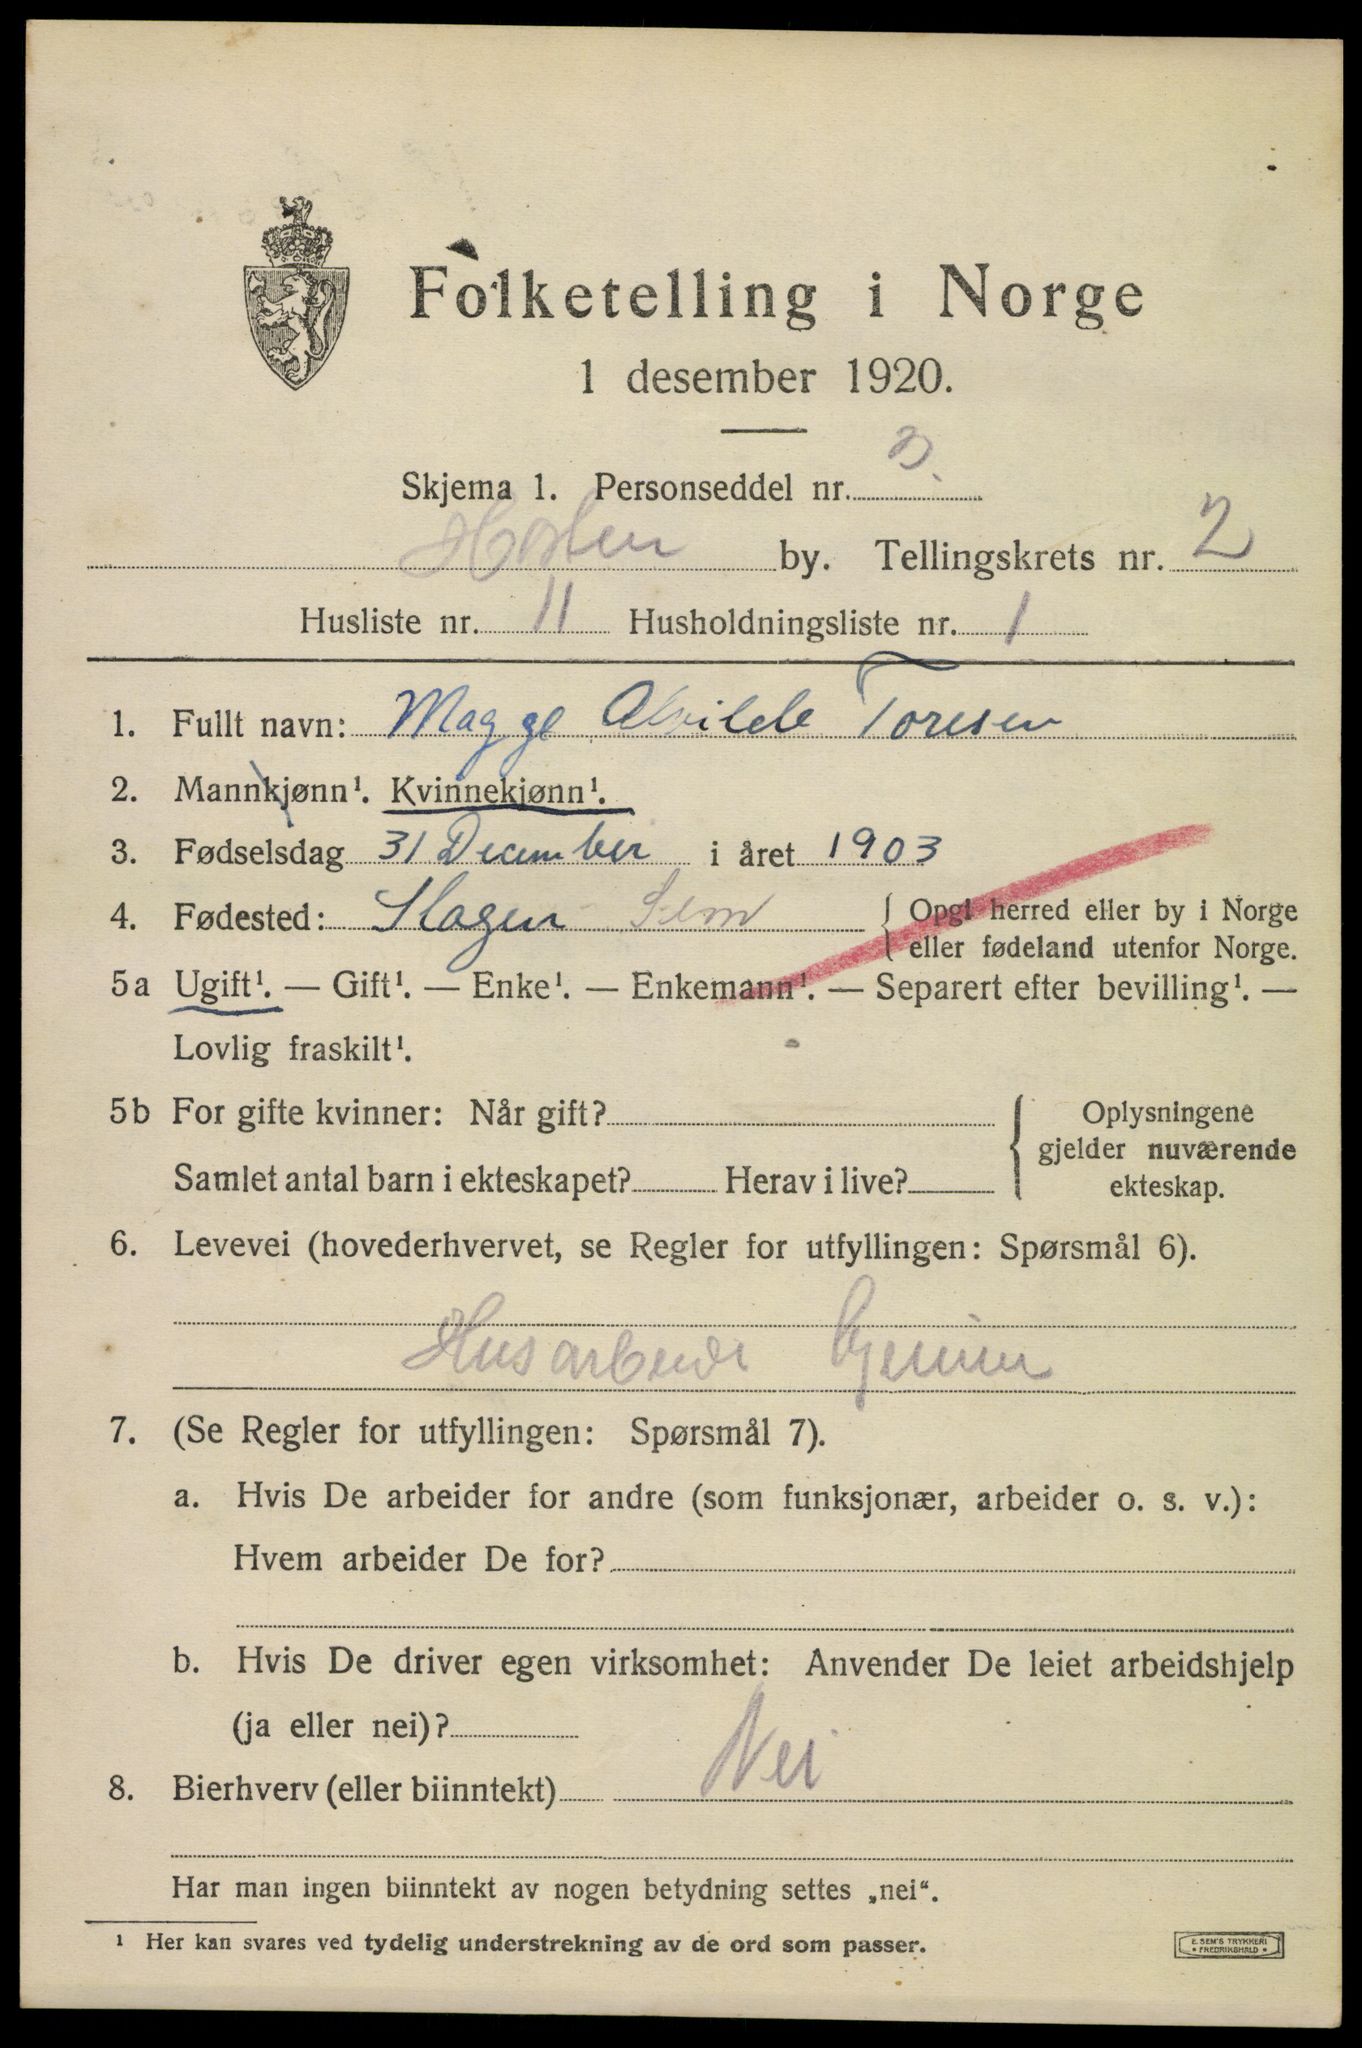 Folketelling i Norge
1 desember 1920.
Skjema 1. Personseddel nr. 3.
Horten by. Tellingskrets nr. 2
Husliste nr. 11 Husholdningsliste nr. 1
1. Fullt navn: Magge Alvilde Toresen
2. Mannkjønn¹. Kvinnekjønn¹.
3. Fødselsdag 31 December i året 1903
4. Fødested: Slagen Sem { Opgi herred eller by i Norge
eller fødeland utenfor Norge.
5a Ugift¹. — Gift¹. — Enke¹. — Enkemann¹. — Separert efter bevilling¹. —
Lovlig fraskilt¹.
5b For gifte kvinner: Når gift? { Oplysningene
gjelder nuværende
Samlet antal barn i ekteskapet? Herav i live? ekteskap.
6. Levevei (hovederhvervet, se Regler for utfyllingen: Spørsmål 6).
Husarbeide hjemme
7. (Se Regler for utfyllingen: Spørsmål 7).
a. Hvis De arbeider for andre (som funksjonær, arbeider o. s. v.):
Hvem arbeider De for?
b. Hvis De driver egen virksomhet: Anvender De leiet arbeidshjelp
(ja eller nei)?
8. Bierhverv (eller biinntekt) Nei
Har man ingen biinntekt av nogen betydning settes „nei“.
¹ Her kan svares ved tydelig understrekning av de ord som passer.
E. SEM'S TRYKKERI
• FREDRIKSHALD •